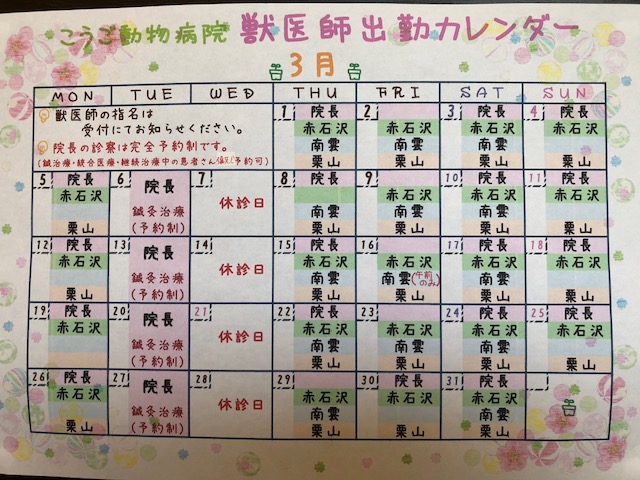 こうご動物病院 獣医師出勤カレンダー
3月
MON TUE WED THU FRI SAT SUN
獣医師の指名は
受付にてお知らせください。
院長の診察は完全予約制です。
(鍼治療・統合医療・継続治療中の患者さん予約可)
1
院長
赤石沢
南雲
栗山
2
赤石沢
南雲
栗山
3
院長
赤石沢
南雲
栗山
4
院長
赤石沢
栗山
5
院長
赤石沢
栗山
6
院長
鍼灸治療
(予約制)
7
休診日
8
院長
南雲
栗山
9
院長
赤石沢
南雲
栗山
10
院長
赤石沢
南雲
栗山
11
院長
赤石沢
栗山
12
院長
赤石沢
栗山
13
院長
鍼灸治療
(予約制)
14
休診日
15
院長
赤石沢
南雲
栗山
16
院長
赤石沢
南雲(午前のみ)
栗山
17
院長
赤石沢
南雲
栗山
18
院長
赤石沢
栗山
19
院長
赤石沢
20
院長
鍼灸治療
(予約制)
21
休診日
22
院長
赤石沢
南雲
栗山
23
院長
赤石沢
栗山
24
院長
赤石沢
南雲
栗山
25
院長
赤石沢
栗山
26
院長
赤石沢
栗山
27
院長
鍼灸治療
(予約制)
28
休診日
29
赤石沢
南雲
栗山
30
院長
赤石沢
栗山
31
院長
赤石沢
南雲
栗山